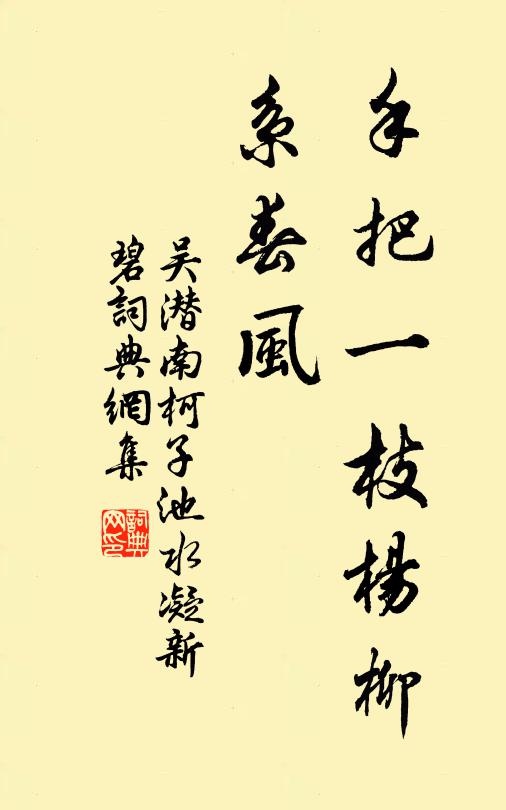 手把一枝楊柳
系春風
吴潜南柯子池水凝新
碧詞典網集
詞典
网印